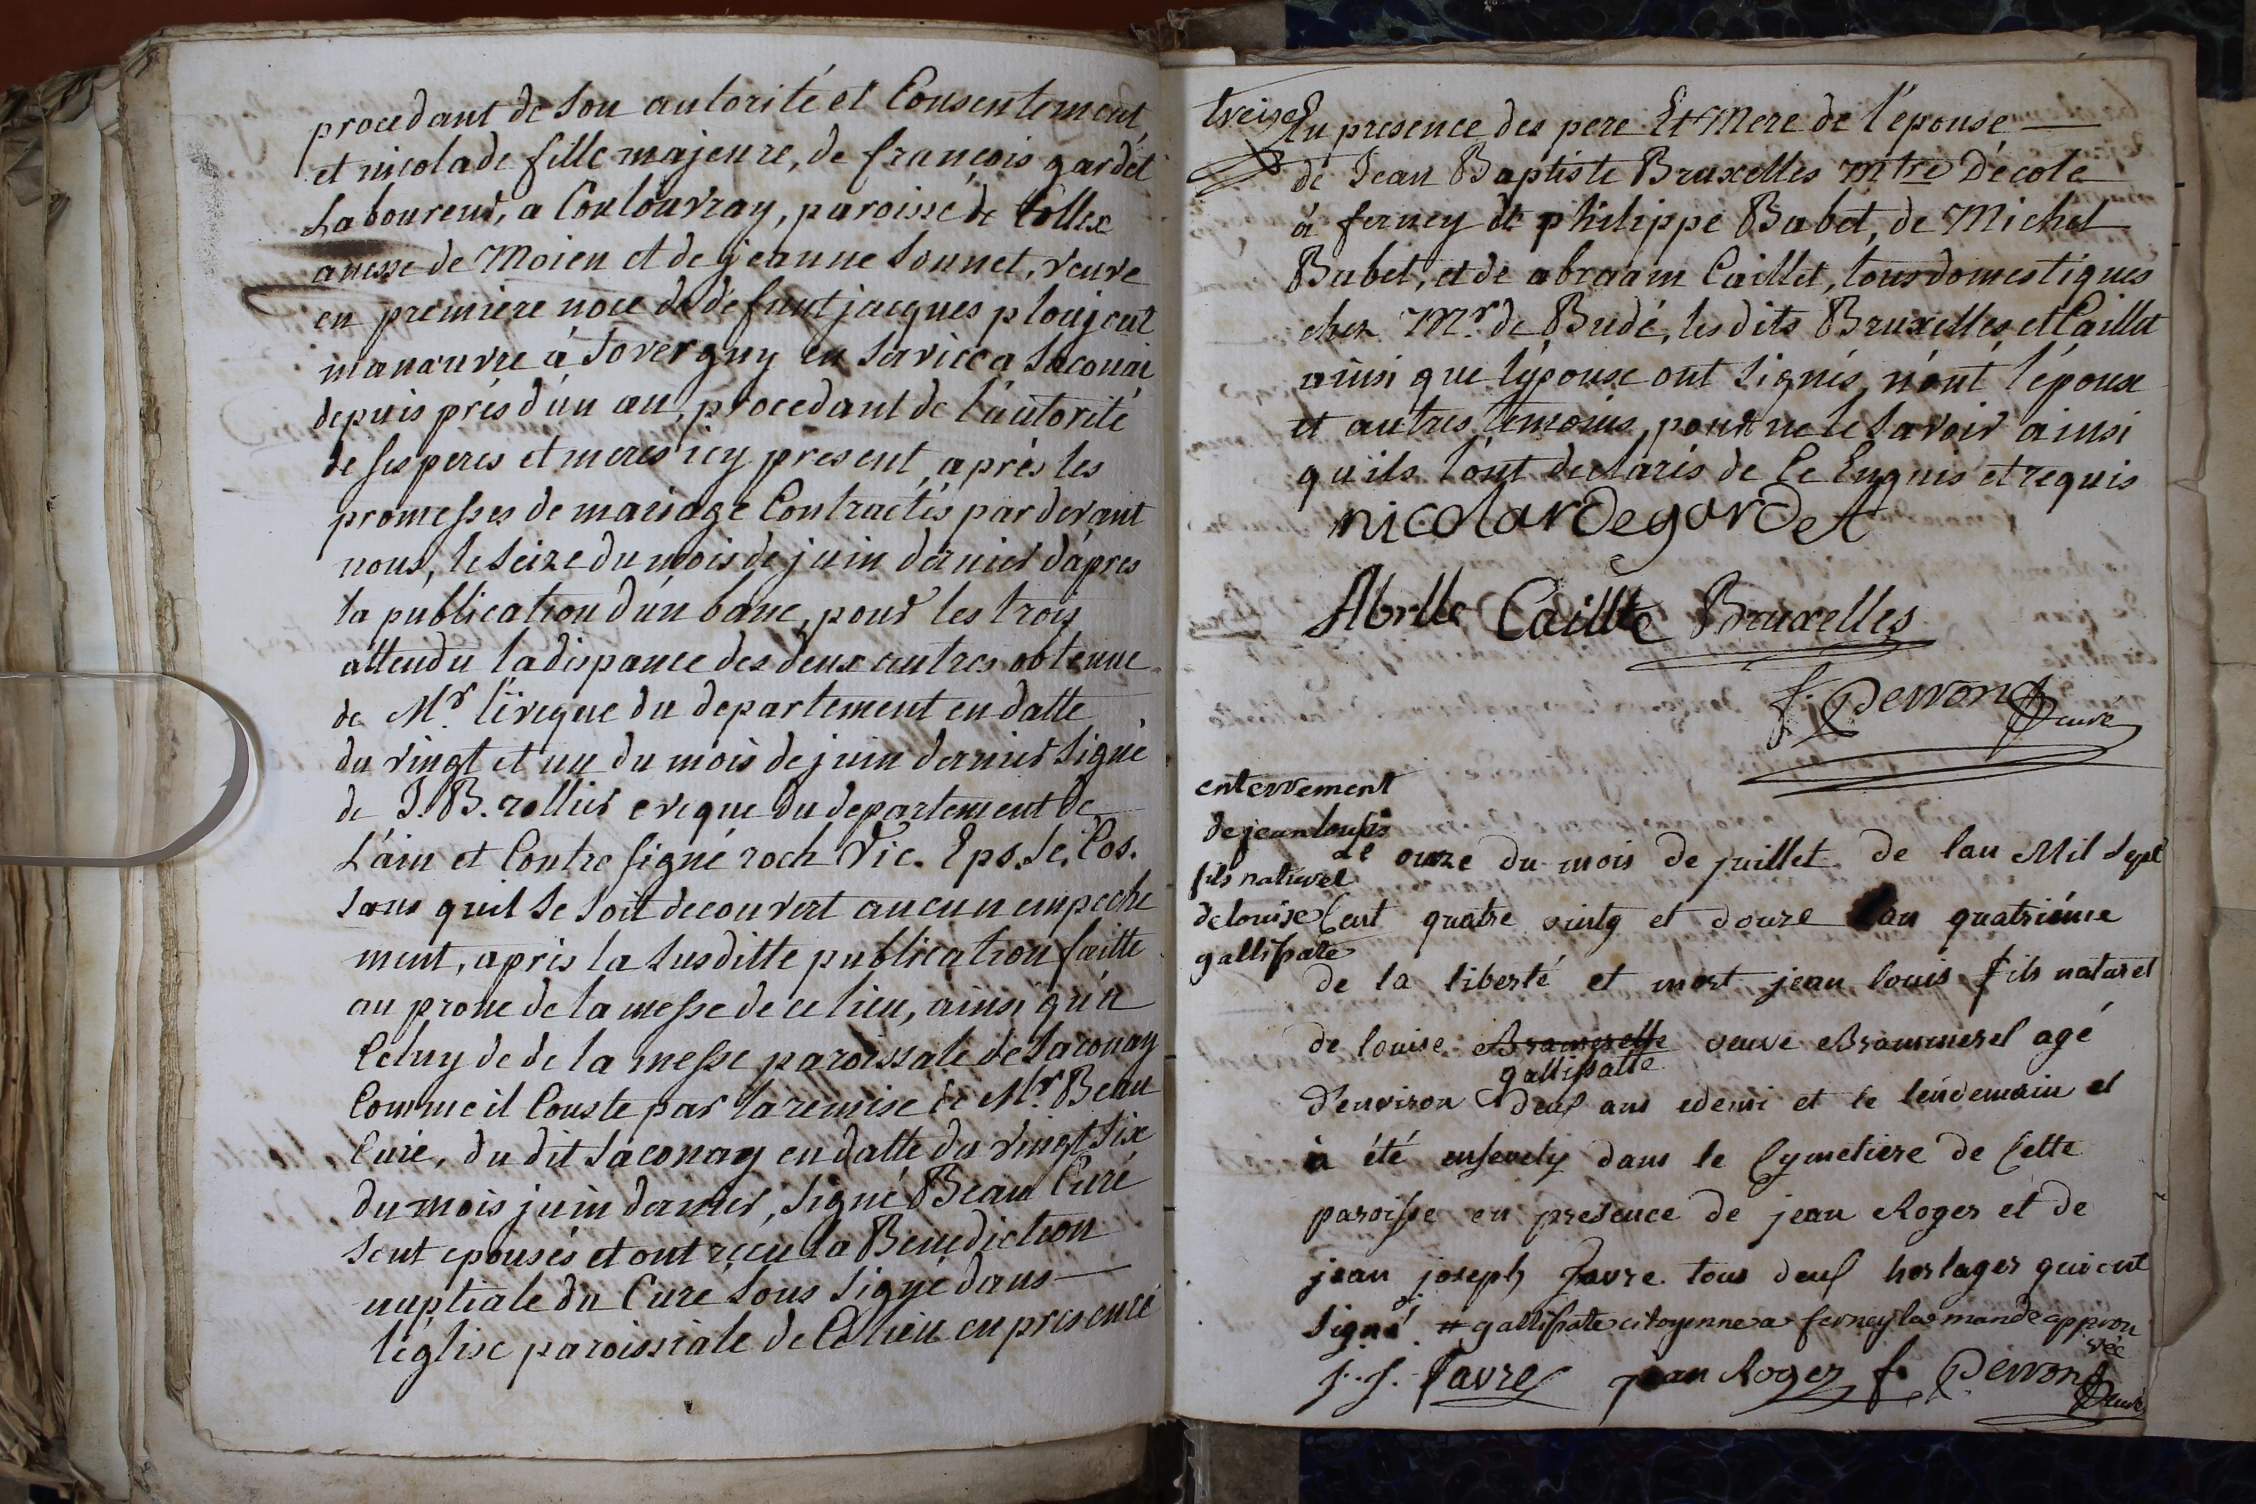 procedant de son autorité et Consentement
et nicolade fille majeure, de françois gardet
Laboureur, a Coulouvray, paroisse de Collex
anesse de Moien et de jeanne Sonnet, veuve
en premiere noce de defunt jacques ploujout
manœuvre à Sovergny en service a Saconai
depuis prés d'un an, procedant de l'autorité
de ses peres et meres icy present, après les
promesses de mariage Contractés par devant
nous, le seize du mois de juin dernier d'apres
la publication d'un banc, pour les trois
attendu la dispance des deux autres obtenue
de Mr. l'éveque du departement en datte
du vingt et un du mois de juin dernier signé
de J. B. rollier eveque du departement de
L'ain et Contre signé roch Vic. Eps. Se. Cos.
sans quil se soit decouvert aucun empeche
ment, apris la susditte publication faitte
au prone de la messe de ce lieu, ainsi qu'a
Celuy de de la messe paroissale de Saconay
Comme il Conste par la remise de Mr. Beau
Curé, du dit Saconay en datte du vingt six
du mois juin dernier, signé Beau Curé
sont epousés et ont reçu la Benediction
nuptiale du Curé sous signé dans
l'église paroissiale de Ce lieu en presence
treize
En presence des pere Et Mere de l'épouse
de Jean Baptiste Bruxelles mtre D'école
à ferney de philippe Babet, de Michel
Babet, et de abraam Caillet, tous domestiques
chez Mr. de Budé, les dits Bruxelles et Caillet
ainsi que l'épouse ont signés, n'ont l'époux
et autres temoins, pour ne le savoir ainsi
qu'ils l'ont declarés de Ce Enquis et requis
nicolardegardet
Abrlle Caillte Bruxelles
f. Perron Curé
enterrement
de jean louis
fils naturel
de louise
gallissate
Le onze du mois de juillet de lan Mil Sept
Cent quatre vintg et douze lan quatriéme
de la liberté et mort jean louis fils naturel
de louise Bramerelle veuve Brammerel agé
gallissatte
d'environ deux ans edemi et le lendemain el
à été ensevely dans le Cymetiere de Cette
paroisse en presence de jean Roger et de
jean joseph favre tous deux horlager qui ont
signé. # gallissate citoyenne a ferney la mande approu
vée
j. j. favre jean Roger f. Perron Curé